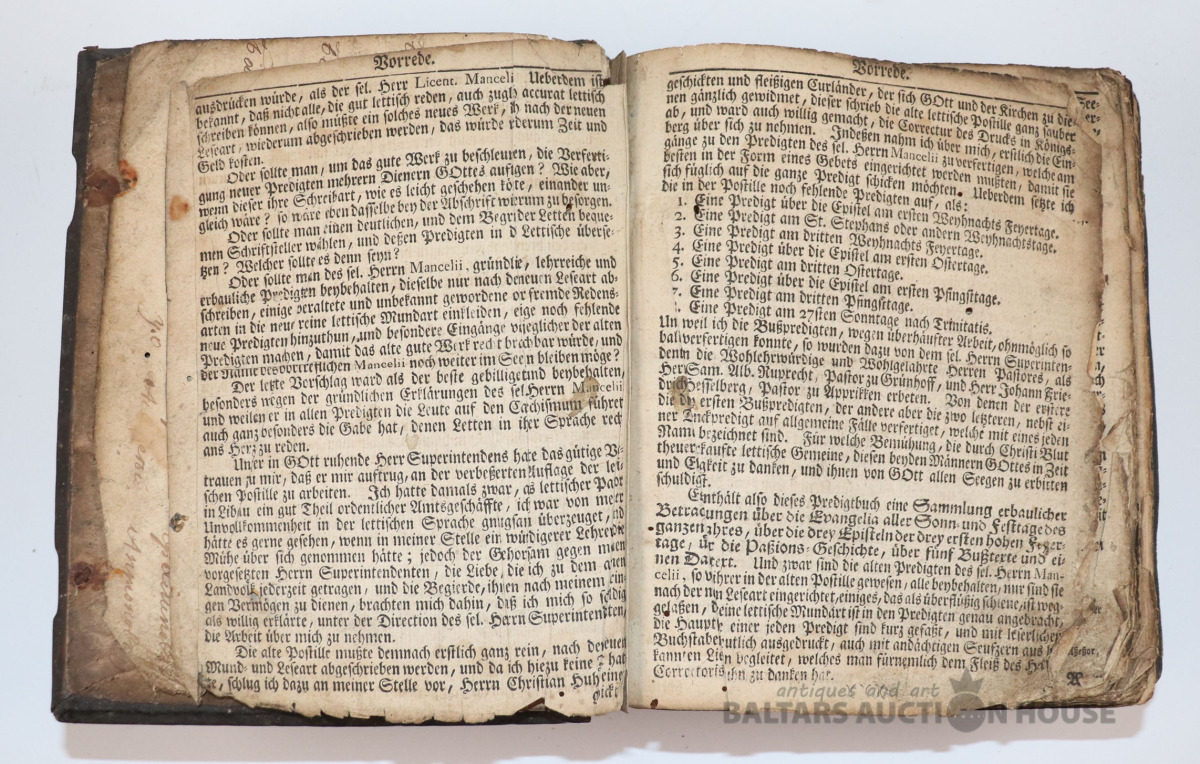 Vorrede.
ausdrücken würde, als der sel. Herr Licent. Manceli Ueberdem ist
bekannt, daß nicht alle, die gut lettisch reden, auch zuglh accurat lettisch
schreiben können, also müßte ein solches neues Werk, h nach der neuen
Leseart, wiederum abgeschrieben werden, das würde rderum Zeit und
Geld kosten.
Oder sollte man, um das gute Werk zu beschleunen, die Verferti-
gung neuer Predigten mehrern Dienern GOttes auftgen? Wie aber,
wenn dieser ihr Schreibart, wie es leicht geschehen köte, einander un-
gleich wäre? so wäre eben dasselbe bey der Abschrift wierum zu besorgen.
Oder sollte man einen deutlichen, und dem Begrider Letten beque-
men Schriftsteller wählen, und deßen Predigten in d Lettische überse-
tzen? Welcher sollte es denn seyn?
Oder sollte man des sel. Herrn Mancelii gründlie, lehrreiche und
erbauliche Predigten beybehalten, dieselbe nur nach deneuen Leseart ab-
schreiben, einige veraltete und unbekannt gewordene or fremde Redens-
arten in die neue reine lettische Mundart einkleiden, eige noch fehlende
neue Predigten hinzuthun, und besondere Eingänge vor jeglicher der alten
Predigten machen, damit das alte gute Werk recht brachbar würde, und
der Name des vortreflichen Mancelii noch weiter im Seen bleiben möge?
Der letzte Vorschlag ward als der beste gebilliget und beybehalten,
besonders wegen der gründlichen Erklärungen des sel. Herrn Mancelii
und weilen er in allen Predigten die Leute auf den Cachismum führet
auch ganz besonders die Gabe hat, denen Letten in ihrer Sprache rech
ans Herz zu reden.
Unser in GOtt ruhende Herr Superintendens hate das gütige V
trauen zu mir, daß er mir auftrug, an der verbeßerten Auflage der let
schen Postille zu arbeiten. Ich hatte damals zwar, as lettischer Pastor
in Libau ein gut Theil ordentlicher Amtsgeschäffte, ich war von meer
Unvollkommenheit in der lettischen Sprache gnugsam überzeuget, nd
hätte es gerne gesehen, wenn in meiner Stelle ein würdigerer Lehrer
Mühe über sich genommen hätte; jedoch der Gehorsam gegen mien
vorgesetzten Herrn Superintendenten, die Liebe, die ich zu dem amen
Landvolk jederzeit getragen, und die Begierde, ihnen nach meinem ein
gen Vermögen zu dienen, brachten mich dahin, daß ich mich so
als willig erklärte, unter der Direction des sel. Herrn Superintendten,
die Arbeit über mich zu nehmen.
Die alte Postille mußte demnach erstlich ganz rein, nach der neuen
Mund- und Leseart abgeschrieben werden, und da ich hiezu keine hat
te, schlug ich dazu an meiner Stelle vor, Herrn Christian Huh eine
Vorrede.
geschickten und fleißigen Curländer, der sich GOtt und der Kirchen zu die-
nen gänzlich gewidmet, dieser schrieb die alte lettische Postille ganz sauber
ab, und ward auch willig gemacht, die Correctur des Drucks in Königs-
berg über sich zu nehmen. Indeßen nahm ich über mich, erstlich die Ein-
gänge zu den Predigten des sel. Herrn Mancelii zu verfertigen, welche am
besten in der Form eines Gebets eingerichtet werden mußten, damit sie
sich füglich auf die ganze Predigt schicken möchten. Ueberdem setzte ich
die in der Postille noch fehlende Predigten auf, als:
1. Eine Predigt über die Epistel am ersten Weyhnachts Feyertage.
2. Eine Predigt am St. Stephans oder andern Weyhnachtstage.
3. Eine Predigt am dritten Weyhnachts Feyertage.
4. Eine Predigt über die Epistel am ersten Ostertage.
5. Eine Predigt am dritten Ostertage.
6. Eine Predigt über die Epistel am ersten Pfingsttage.
7. Eine Predigt am dritten Pfingsttage.
. Eine Predigt am 27sten Sonntage nach Trinitatis.
Un weil ich die Bußpredigten, wegen überhäufter Arbeit, ohnmöglich so
bal verfertigen konnte, so wurden dazu von dem sel. Herrn Superinten-
denten die Wohlehrwürdige und Wohlgelahrte Herren Pastores, als
Her Sam. Alb. Ruprecht, Pastor zu Grünhoff, und Herr Johann Frie-
drich Hesselberg, Pastor zu Appricken erbeten. Von denen der erstere
die ersten Bußpredigten, der andere aber die zwo letzteren, nebst ei-
ner Danckpredigt auf allgemeine Fälle verfertiget, welche mit eines jeden
Nam bezeichnet sind. Für welche Bemühung, die durch Christi Blut
theuer kaufte lettische Gemeine, diesen beyden Männern GOttes in Zeit
und Eigkeit zu danken, und ihnen von GOtt allen Seegen zu erbitten
schuldig ist.
Enthält also dieses Predigtbuch eine Sammlung erbaulicher
Betracungen über die Evangelia aller Sonn- und Festtage des
ganzen Jahres, über die drey Episteln der drey ersten hohen Feyer-
tage, ür die Paßions-Geschichte, über fünf Bußtexte und ei-
nen Dacext. Und zwar sind die alten Predigten des sel. Herrn Man-
celii, so vi hrer in der alten Postille gewesen, alle beybehalten, nur sind sie
nach der nun Leseart eingerichtet, einiges, das als überflüßig schiene, ist weg-
gelaßen, deine lettische Mundart ist in den Predigten genau angebracht,
die Haupt einer jeden Predigt sind kurz gefaßt, und mit leserlichen
Buchstabe utlich ausgedruckt, auch mit andächtigen Seufzern aus
kannten Lien begleitet, welches man fürnemlich dem Fleiß des
Correctoris ihn zu danken hat.
antiques and art
BALTARS AUCTION HOUSE